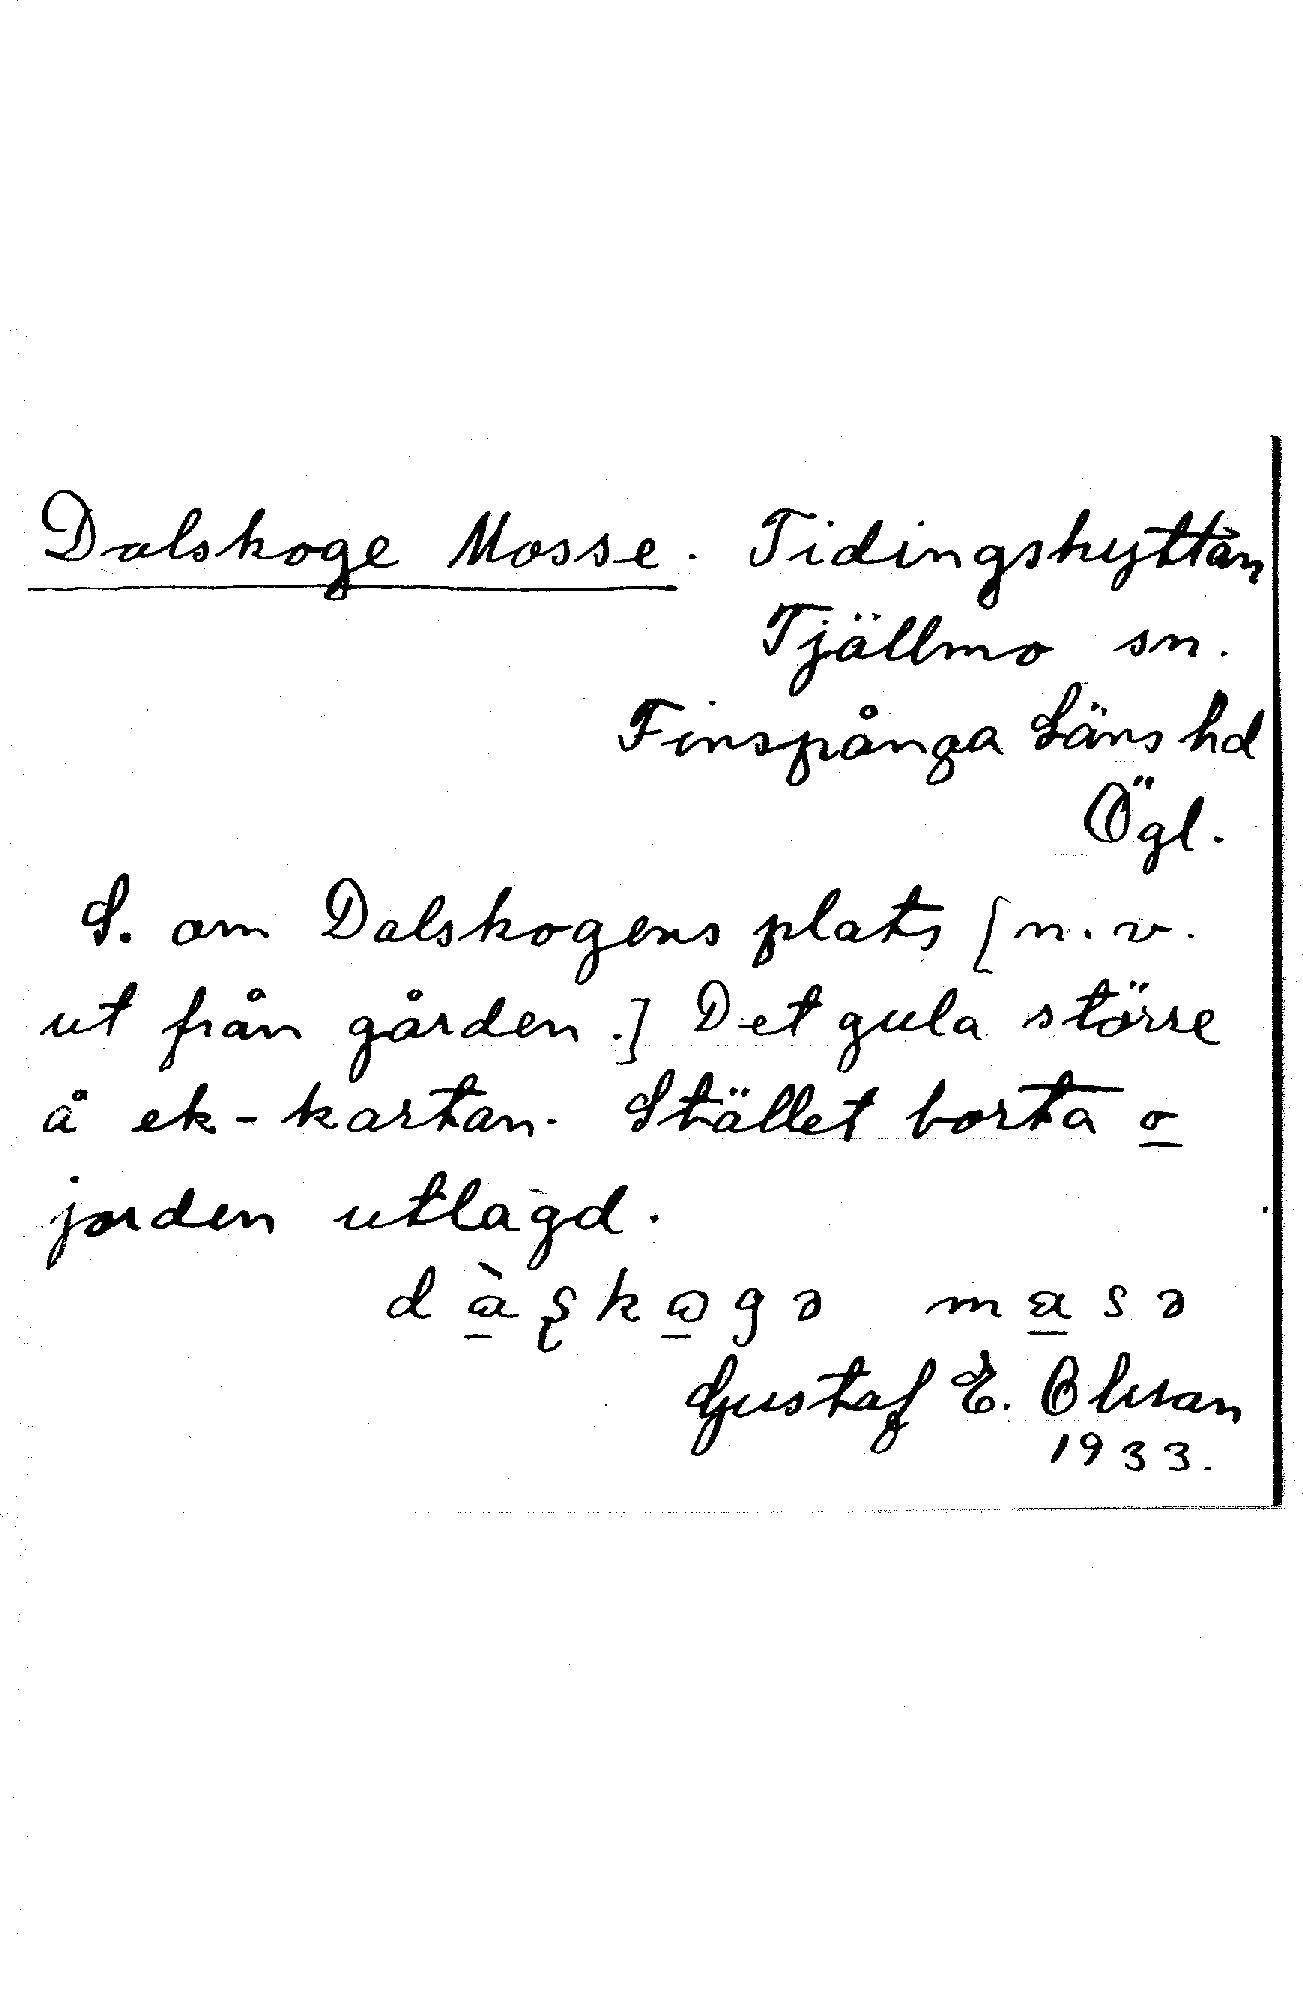 Dalskoge Mosse. Tidingshyttan
Tjällmo sn.
Finspånga Läns hd
Ögl.
S. om Dalskogens plats [n.v.
ut från gården.] Det gula större
å ek-kartan. Stället borta o
jorden utlagd.
dàʂkogə masə
Gustaf E. Olsson
1933.